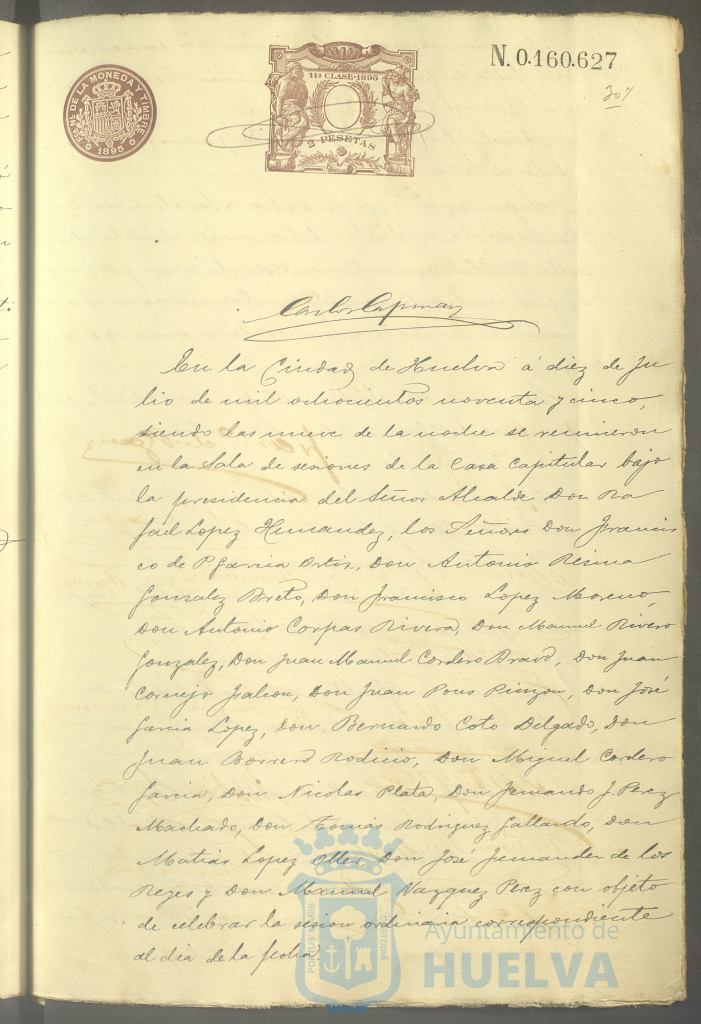 Fª NAL DE LA MONEDA Y TIMBRE
1895
11ª CLASE·1895
2 PESETAS
N.0.160.627
307
En la Ciudad de Huelva á diez de Ju
lio de mil ochocientos noventa y cinco,
siendo las nueve de la noche se reunieron
en la Sala de sesiones de la Casa Capitular bajo
la presidencia del Señor Alcalde Don Ra
fael Lopez Hernandez, los Señores Don Francis
co de P Garcia Ortiz, Don Antonio Resina
Gonzalez Breto, Don Francisco Lopez Moreno,
Don Antonio Corpas Rivera, Don Manuel Rivero
Gonzalez, Don Juan Manuel Cordero Bravo, Don Juan
Cornejo Falcon, Don Juan Pons Pinzon, Don José
Garcia Lopez, Don Bernardo Coto Delgado, Don
Juan Borrero Rodicio, Don Miguel Cordero
Garcia, Don Nicolas Plata, Don Fernando J. Perez
Machado, Don Tomás Rodriguez Gallardo, Don
Matias Lopez Don José Fernandez de los
Reyes y Don Manuel Vazquez Perez con objeto
de celebrar la sesion ordinaria correspondiente
al dia de la fecha
PORTUS MARIS
CUSTODIA
Ayuntamiento de
HUELVA